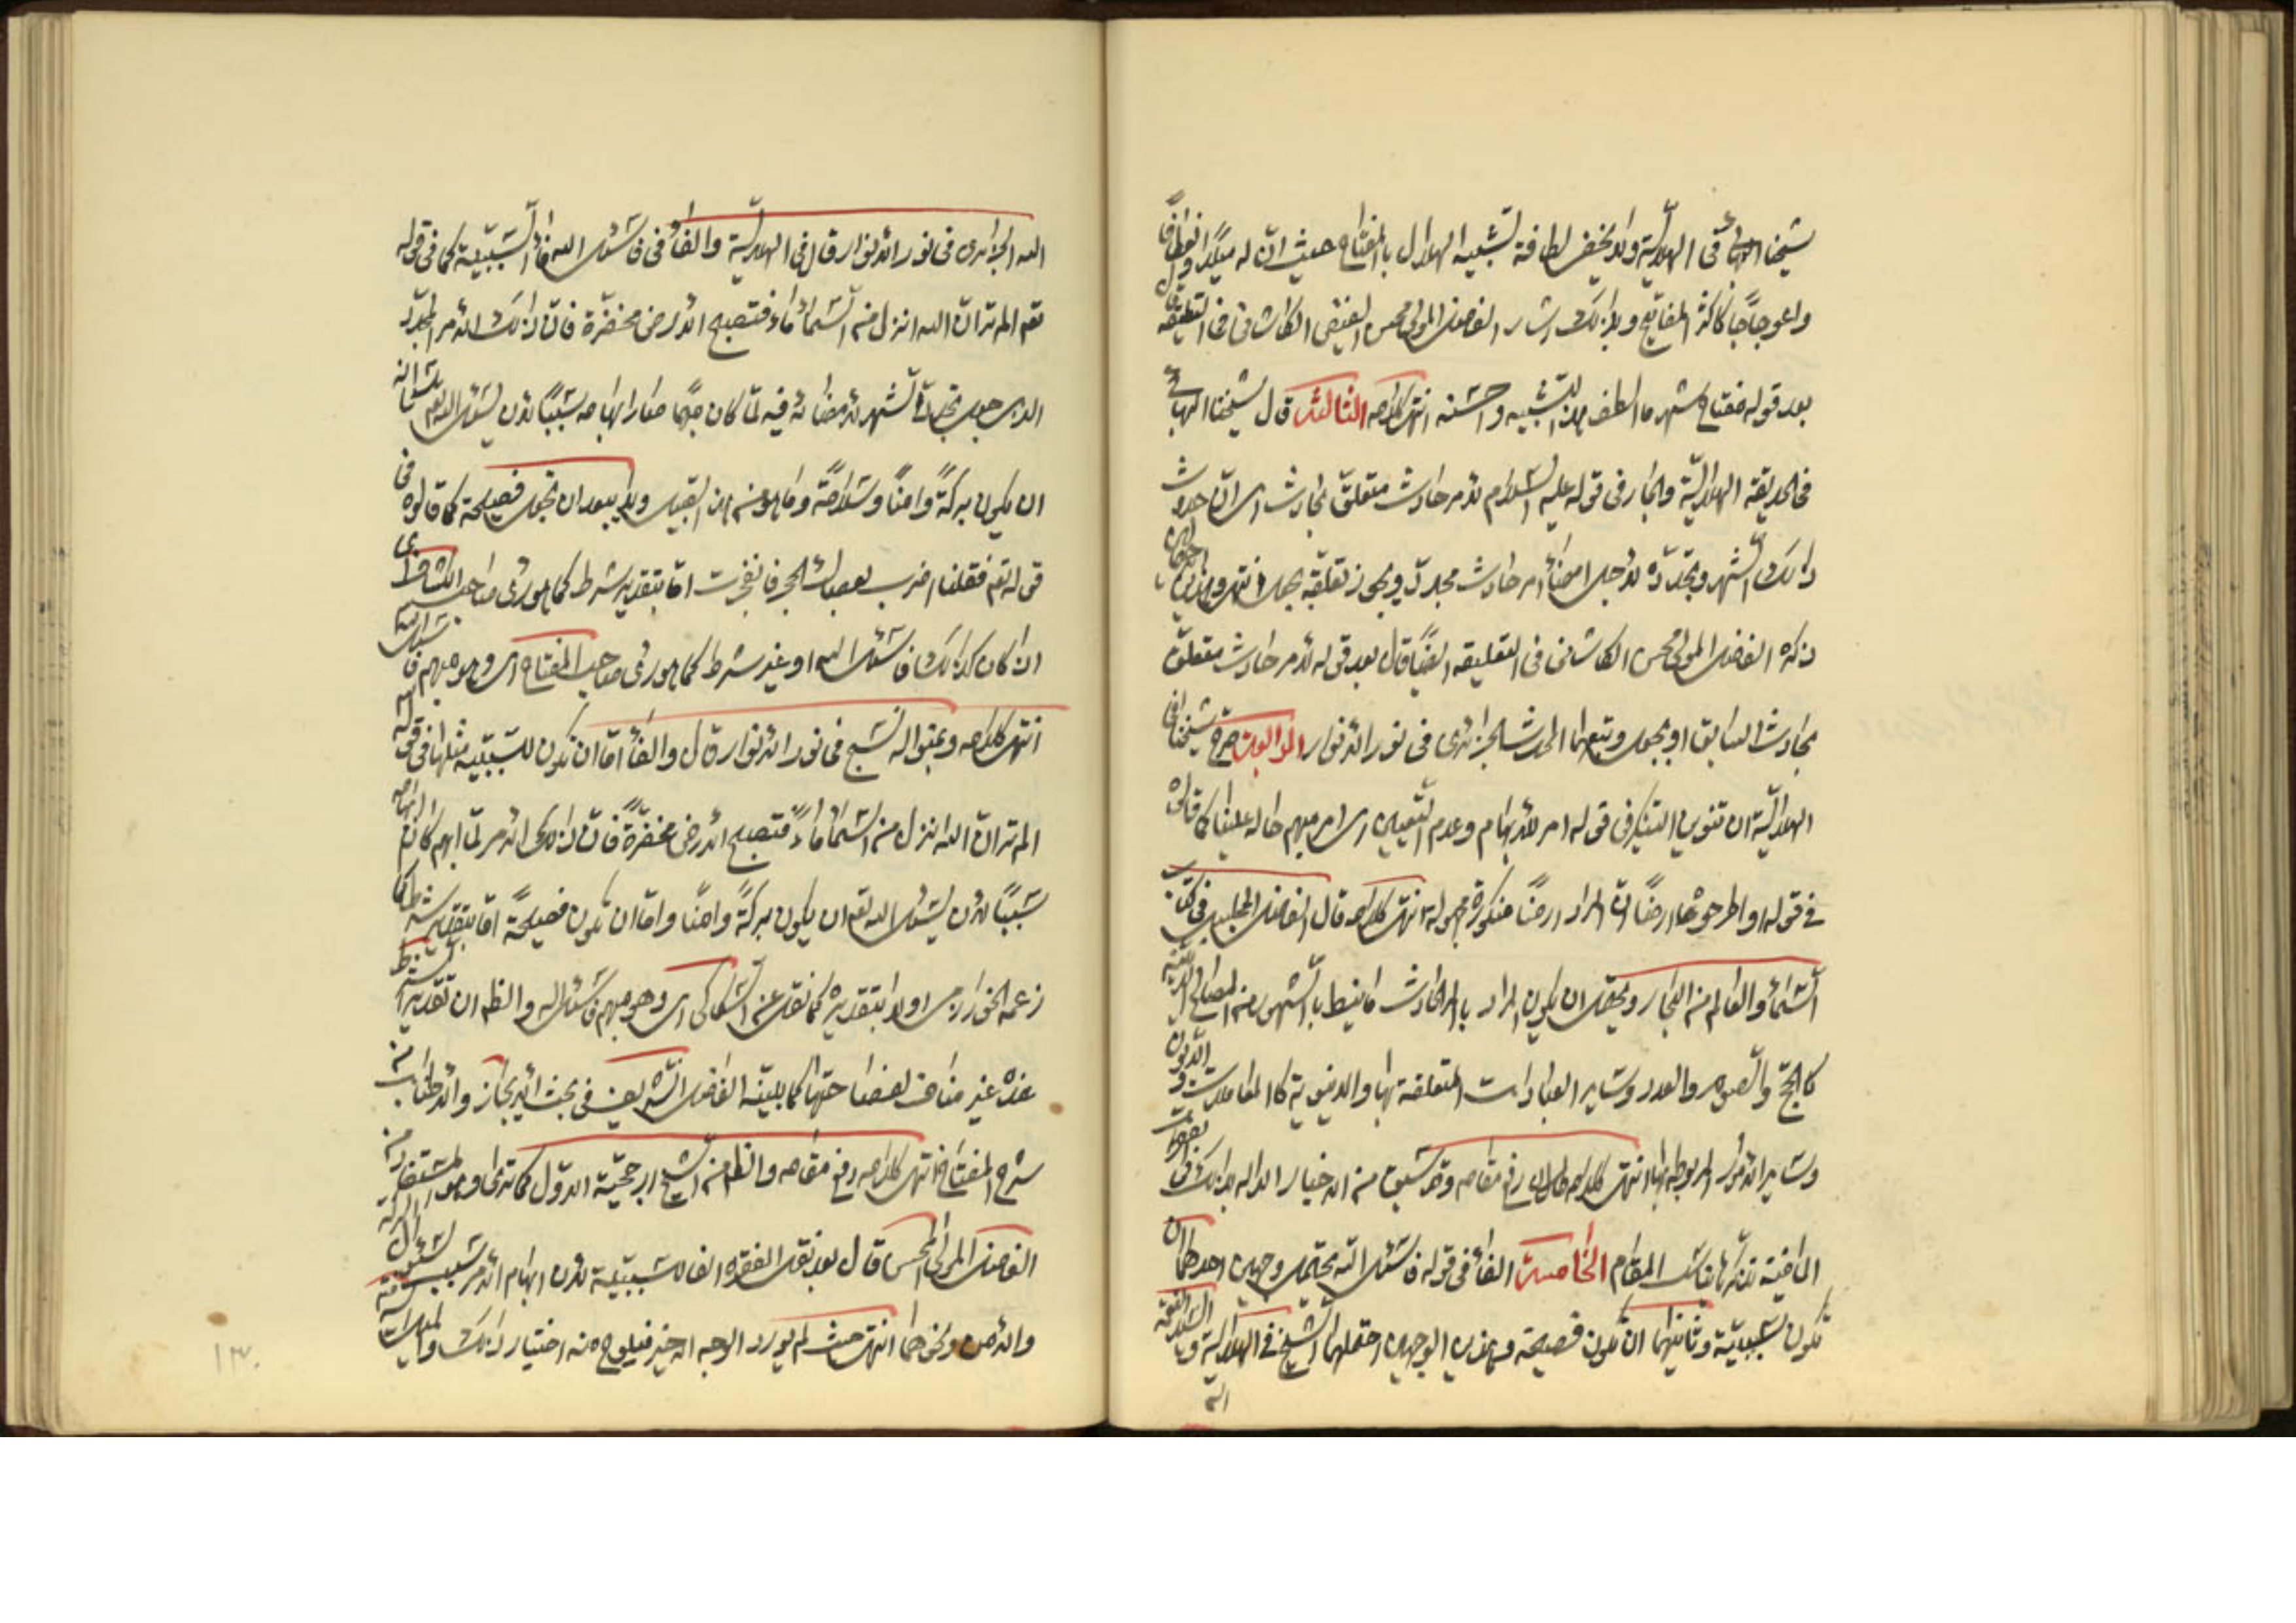 شيخنا البهائى فى الهلاليّة ولا يخفى لطافة تشبيه الهلال بالمفتاح حيث انّ له ميلًا وانعطافًا
واعوجاجًا كاكثر المفاتيح وبذلك اشار الفاضل المولى محسن الفيض الكاشانى فى التعليقة
بعد قوله مفتاح شهر ما الطف هذا التشبيه واحسنه انتهى كلامه الثالثة قال شيخنا البهائى
فى الحديقة الهلاليّة والجار فى قوله عليه السّلام لامر حادث متعلّق بحادث اى انّ حدوث
ذلك الشهر وتجدّده لاجل امضاء امر حادث مجدد ويجوز تعلقه بجعل انتهى وهذين
ذكره الفاضل المولى محسن الكاشانى فى التعليقة ايضًا قال بعد قوله لامر حادث متعلّق
بحادث السابق او بجعل وتبعهما المحدث الجزائرى فى نور الانوار الرابعة صرح شيخنا فى
الهلاليّة ان تنوين التنكير فى قوله امر للابهام وعدم التعيين اى امر مبهم حاله علينا كما قالوه
فى قوله او اطرحوه ارضًا انّ المراد ارضًا منكورة مجهولة انتهى كلامه قال الفاضل المجلسى فى كتاب
السّماء والعالم من البحار ويحتمل ان يكون المراد بالامر الحادث ما ينيط بالشهور من المصالح الدينيّة
كالحج والصوم والعدد وساير العبادات المتعلقة بها والدنيوية كالمعاملات والديون
وساير الامور المربوطة بها انتهى كلامه طاب رمسه رفع مقامه وقد سبق من الاخبار الدالة
الماضية تذكرها يناسب المقام الخامسة الفاء فى قوله فاسئل الله يحتمل وجهين احدهما ان
تكون سببيّة وثانيهما ان تكون فصيحة وهذين الوجهين احتملهما الشيخ فى الهلاليّة والسيد نعمة
الله
الله الجزائرى فى نور الانوار قال فى الهلاليّة والفاء فى فاسئل الله فاء السّببيّة كما فى قوله
تعم الم تر انّ الله انزل من السّماء ماءً فتصبح الارض مخضرّة فانّ ذلك الامر المجدّد
الذى جعل تجدد الشهر لامضائه فيه لمّا كان مبهما صار ابهامه سببًا لان يسئل الله تعم
ان يكون بركةً وامنًا وسلامةً وما هو من هذا القبيل ولا يبعد ان تجعل فصيحة كما قالوه فى
قوله تعم فقلنا اضرب بعصاك الحجر فانفجرت امّا بتقدير شرط كما هو رأى صاحب الكشاف اى
ان كان كذلك فاسئل الله او غير شرط كما هو رأى صاحب المفتاح اى وهو مبهم فاسئل الله
انتهى كلامه وبمنواله نسج فى نور الانوار قال والفاء امّا ان تكون للسّببيّة مثلها فى قوله
الم تر انّ الله انزل من السّماء ماءً فتصبح الارض مخضرّةً فانّ ذلك الامر لمّا ابهم كان ابهامه
سببًا لان يسئل الله تعم ان يكون بركةً وامنًا وامّا ان تكون فصيحةً امّا بتقدير شرط كما
زعمه الخوارزمى او بلا بتقديره كما نقل عن السّكاكى اى وهو مبهم فاسئل الله والظم ان تقدير الشرط
غير مناف لفصاحتها كما بيّنه الفاضل الشريف فى بحث الايجاز والاطناب من
شرح المفتاح انتهى كلامه رفع مقامه والظم من الشيخ ارجحيّة الاول كما ترى وهو المستفاد من
الفاضل المولى المحسن قال بعد نقل الفقرة الفاء سببيّة لان ابهام الامر سبب لسئوال البركة
والامن ونحوهما انتهى حيث لم يورد الوجه الاخير فيلوح منه اختيار ذلك
١٣٠